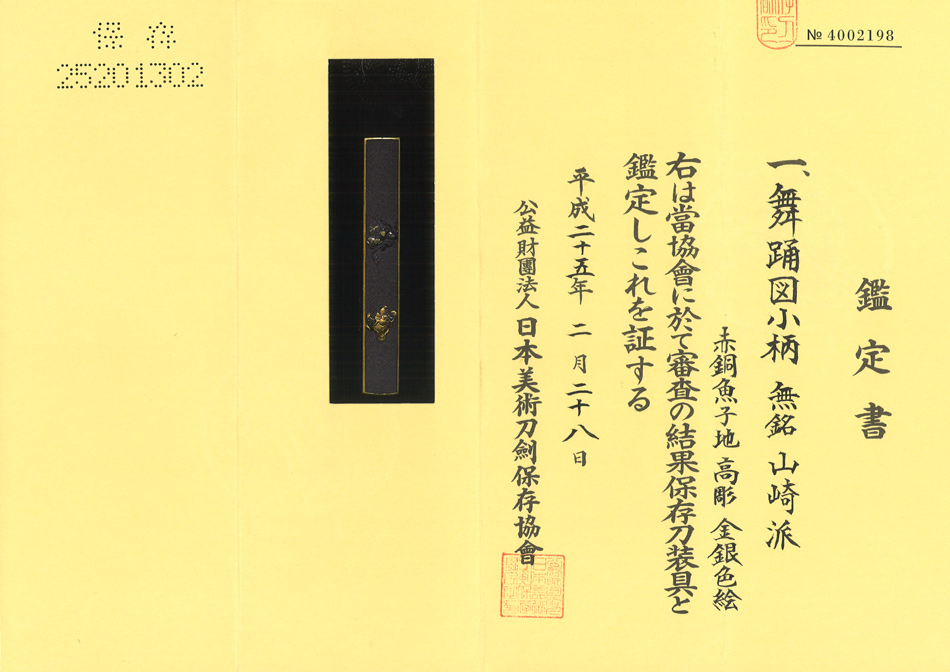 № 4002198
鑑定書
一、舞踊図小柄 無銘 山崎派
赤銅魚子地 高彫 金銀色絵
右は當協會に於て審査の結果保存刀装具と
鑑定しこれを証する
平成二十五年 二月二十八日
公益財團法人 日本美術刀劍保存協會
保存
25201302